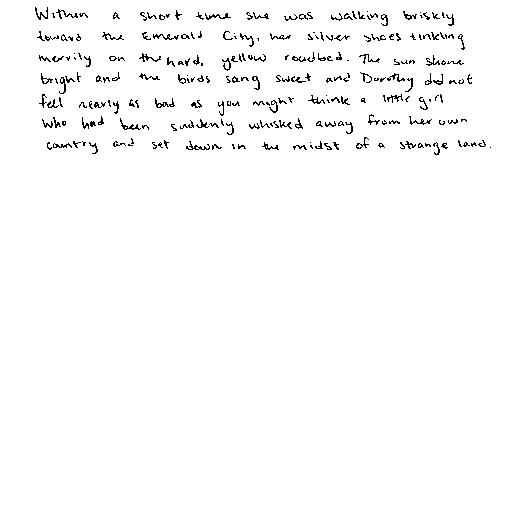 Within a short time she was walking briskly
toward the Emerald City, her silver shoes tinkling
merrily on the hard, yellow roadbed. The sun shone
bright and the birds sang sweet and Dorothy did not
fell nearly as bad as you might think a little girl
who had been suddenly whisked away from her own
country and set down in the midst of a strange land.